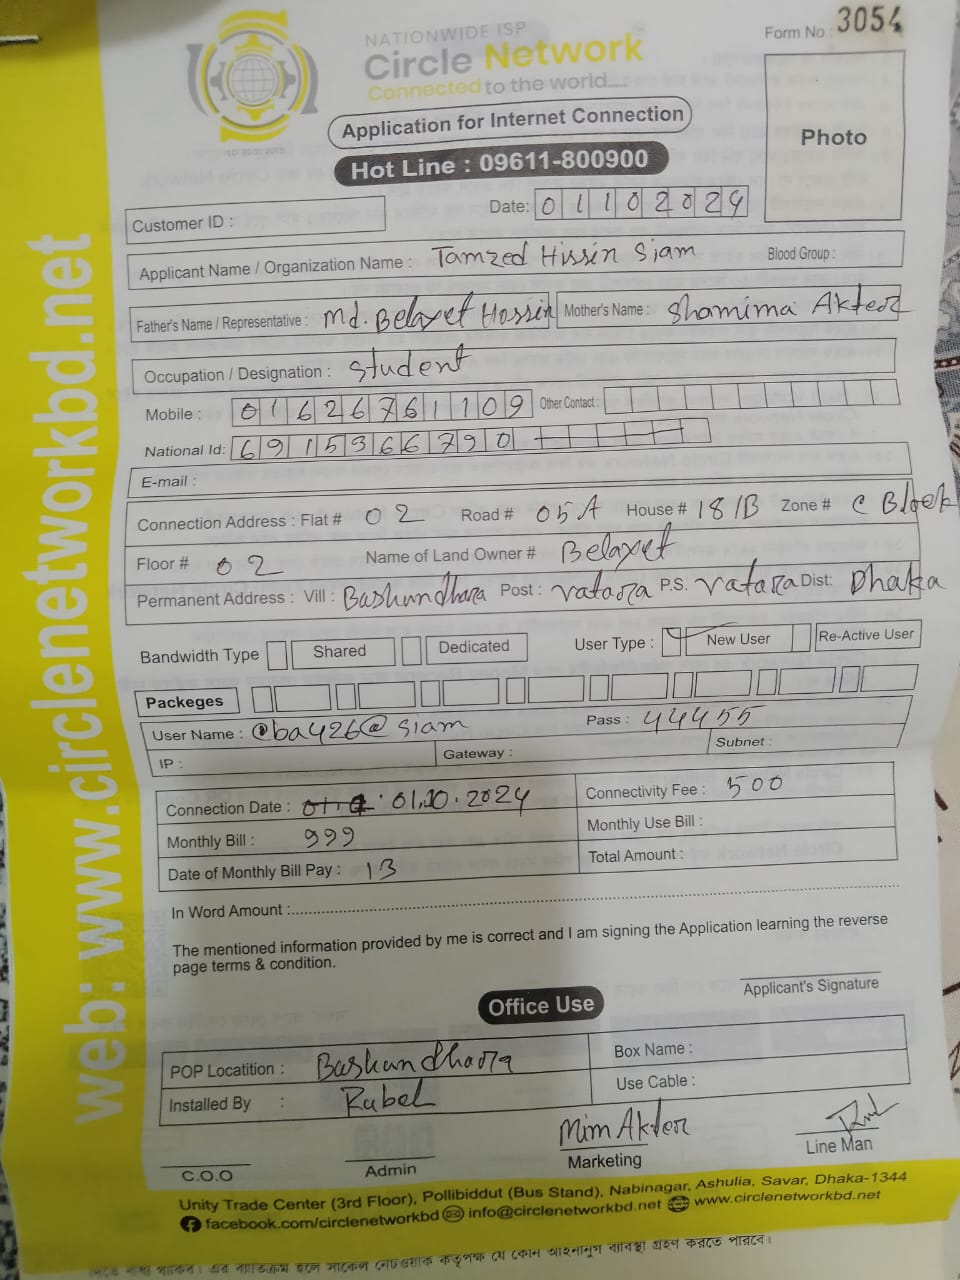 NATIONWIDE ISP
Circle Network
Connected to the world.....
Form No : 3054
Application for Internet Connection
Hot Line : 09611-800900
Photo
Customer ID :
Date: 01102024
Applicant Name / Organization Name : Tamzed Hissin Siam Blood Group :
Father's Name / Representative : Md. Belayet Hossin Mother's Name : Shamima Akter
Occupation / Designation : Student
Mobile : 01626761109 Other Contact :
National Id: 6915366790
E-mail :
Connection Address : Flat # 02 Road # 05A House # 181B Zone # C Block
Floor # 02 Name of Land Owner # Belayet
Permanent Address : Vill : Bashundhara Post : Vatara P.S. Vatara Dist: Dhaka
Bandwidth Type Shared Dedicated User Type : New User Re-Active User
Packeges
User Name : @ba426@siam Pass : 44455
IP : Gateway : Subnet :
Connection Date : 01.10.2024 Connectivity Fee : 500
Monthly Bill : 999 Monthly Use Bill :
Date of Monthly Bill Pay : 13 Total Amount :
In Word Amount :
The mentioned information provided by me is correct and I am signing the Application learning the reverse
page terms & condition.
Applicant's Signature
Office Use
POP Locatition : Bashundhara Box Name :
Installed By : Rubel Use Cable :
Mim Akter
C.O.O Admin Marketing Line Man
Unity Trade Center (3rd Floor), Pollibiddut (Bus Stand), Nabinagar, Ashulia, Savar, Dhaka-1344
facebook.com/circlenetworkbd info@circlenetworkbd.net www.circlenetworkbd.net
web: www.circlenetworkbd.net